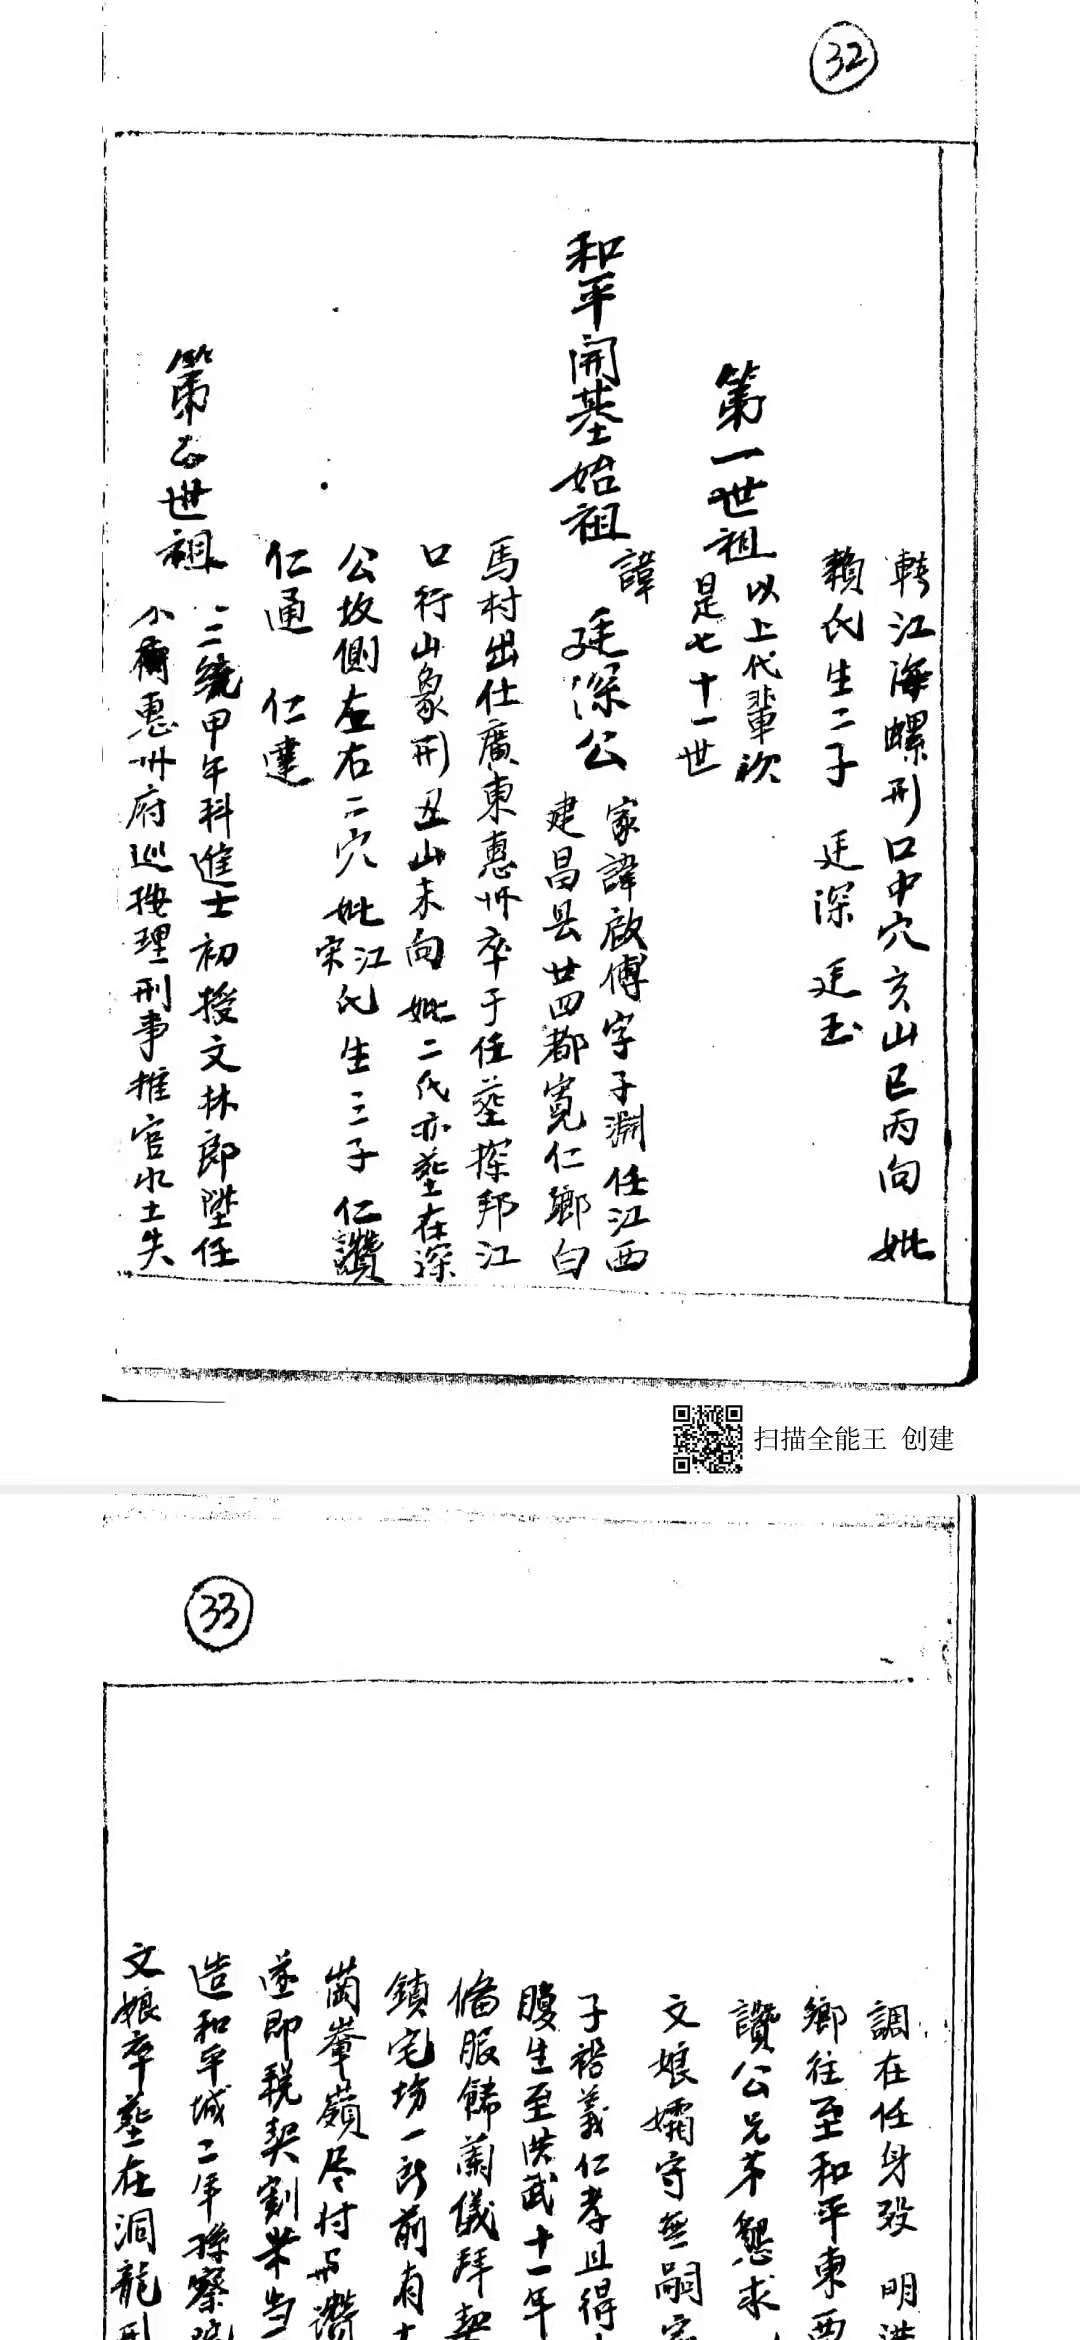 32
轉江海螺形口中穴亥山巳丙向 妣
賴氏生二子 廷深 廷玉
第一世祖
以上代輩次
是七十一世
和平開基始祖
諱
廷深公
家諱啟傅字子淵任江西
建昌县廿四都寬仁鄉白
馬村出仕廣東惠州卒于任葬探邦江
口行山象形丑山未向妣二代亦葬在深
公坟側左右二穴妣江宋氏生三子仁讚
仁通 仁達
第二世祖
三統甲午科進士初授文林郎陞任
惠州府巡按理刑事推官水土失
扫描全能王 创建
33
調在任身殁 明洪
鄉往至和平東西
讚公兄弟懇求
文娘孀守無嗣
子裕義仁孝且得
腹生至洪武十一年
備服餙蘭儀拜契
鎮宅坊一所前有
崗峯嶺尽付与讚
遂即税契割米当
造和平城二年孫察院
文娘卒葬在洞龍形